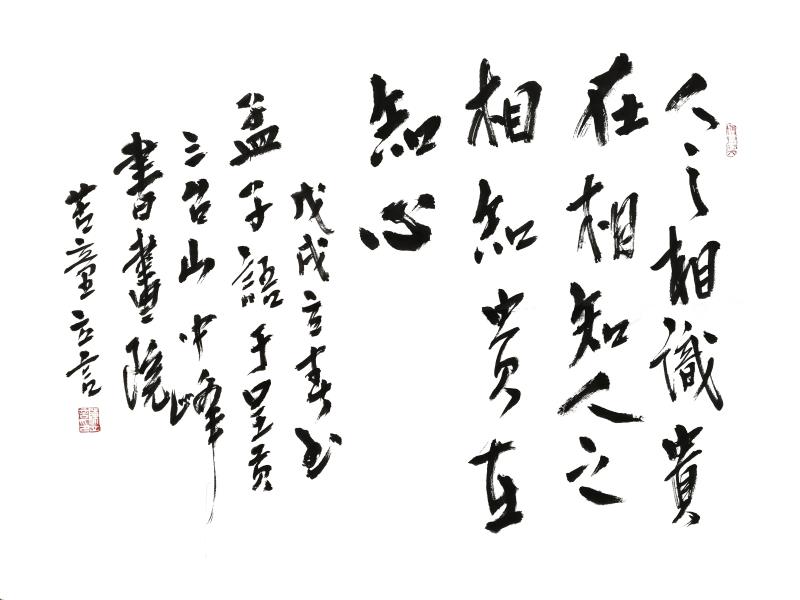 人之相識貴
在相知人之
相知贵在
知心
戊戌立春书
孟子語于呈贡
三台山中峰
書畫院
童立言